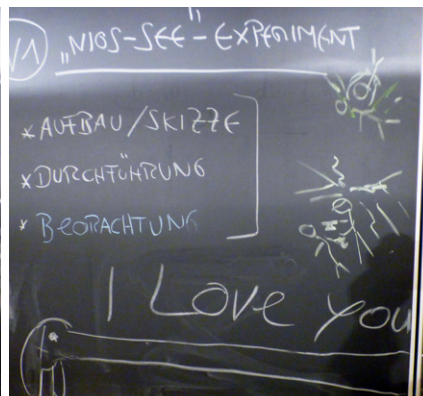 V1 „NIOS-SEE"-EXPERIMENT
* AUFBAU/SKIZZE
* DURCHFÜHRUNG
* BEOBACHTUNG
I Love you